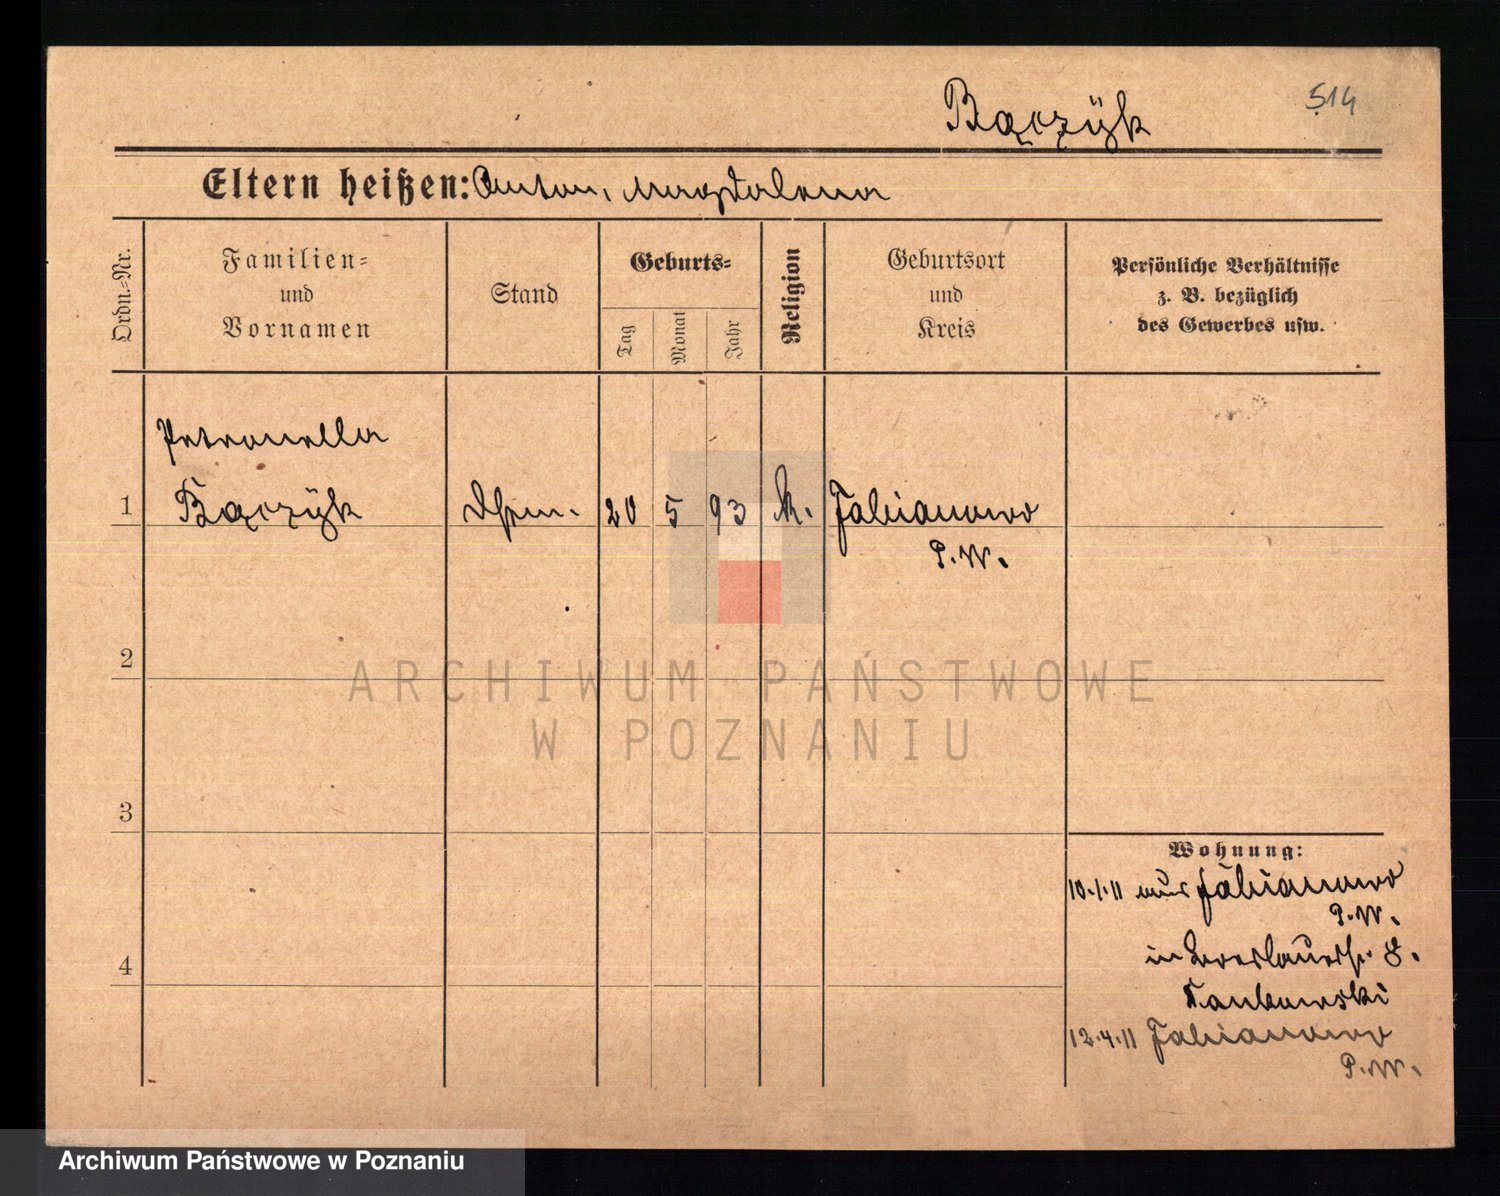 514
Bączÿk
Eltern heißen: Anton, Magdalena
Ordn.-Nr.
Familien-
und
Vornamen
Stand
Geburts-
Tag
Monat
Jahr
Religion
Geburtsort
und
Kreis
Persönliche Verhältnisse
z. B. bezüglich
des Gewerbes usw.
Petronella
1 Bączÿk 20 5 93 k. Fabianowo
P.W.
2
3
4
Wohnung:
10.1.11 aus Fabianowo
P.W.
in Breslauerstr. 8.
Tankowski
12.4.11 Fabianowo
P.W.
ARCHIWUM PAŃSTWOWE
W POZNANIU
Archiwum Państwowe w Poznaniu